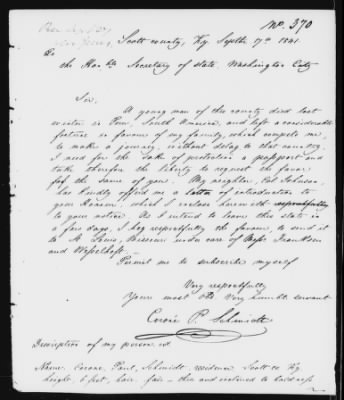 No. 370
Scott county, Ky. Septbr 17th 1841.
To
the Honble Secretary of state, Washington City
Sir,
A young man of this county died last
winter in Peru, South America, and left a considerable
fortune in favour of my family, which compels me,
to make a journey, without delay to that country.
I need for the sake of protection a passport and
take therefore the liberty to request the favor
for the same of you. My neighbor, Col Johnson
has kindly offered me a letter of introduction to
your Honour, which I inclose herewith respectfully
to your notice. As I intend to leave this state in
a few days, I beg respectfully the favour, to send it
to St Louis, Missouri under care of Messrs
and Wesselhoft.
Permit me to subscribe myself
Very respectfully
Your most obt Very humbl. servant
P. Schmidt
Description of my person id.
Name: Paul, Schmidt residence Scott co Ky
height, 6 feet, hair, fair - thin and inclined to baldness